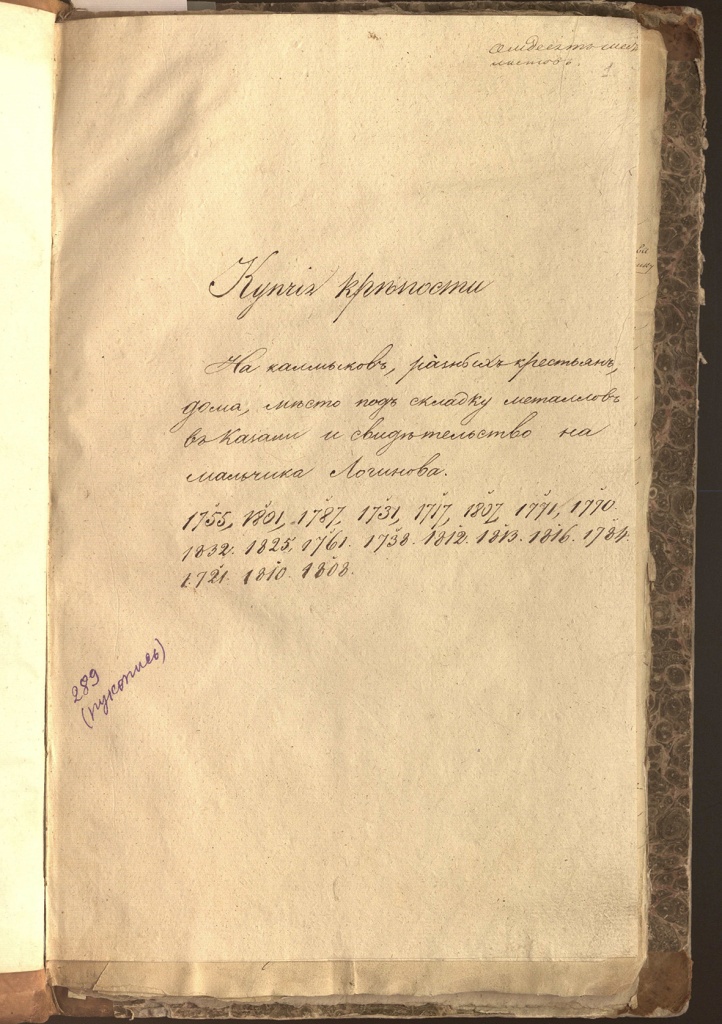 листовъ.
1
Купчія крѣпости
На калмыковъ, разныхъ крестьянъ,
дома, мѣсто подъ складку металловъ
въ Казани и свидѣтельство на
мальчика Логинова.
1755, 1801, 1787, 1731, 1717, 1807, 1771, 1770.
1832. 1825, 1761. 1738. 1812. 1813. 1816. 1784.
1721. 1810. 1808.
289
(рукопись)